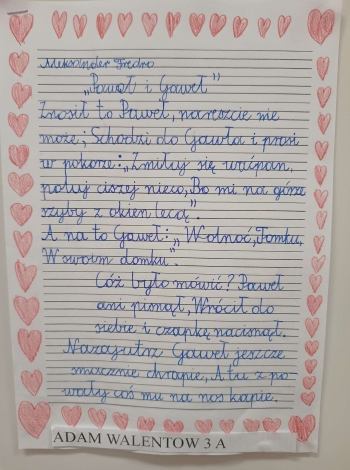 Aleksander Fredro
„Paweł i Gaweł"
Znosił to Paweł, nareszcie nie
może; Schodzi do Gawła i prosi
w pokorze: „Zmiłuj się waćpan,
poluj ciszej nieco, Bo mi na górze
szyby z okien lecą".
A na to Gaweł: „Wolnoć, Tomku,
W swoim domku".
Cóż było mówić? Paweł
ani pisnął, Wrócił do
siebie i czapkę nacisnął.
Nazajutrz Gaweł jeszcze
smacznie chrapie, A tu z po
wały coś mu na nos kapie.
ADAM WALENTOW 3 A